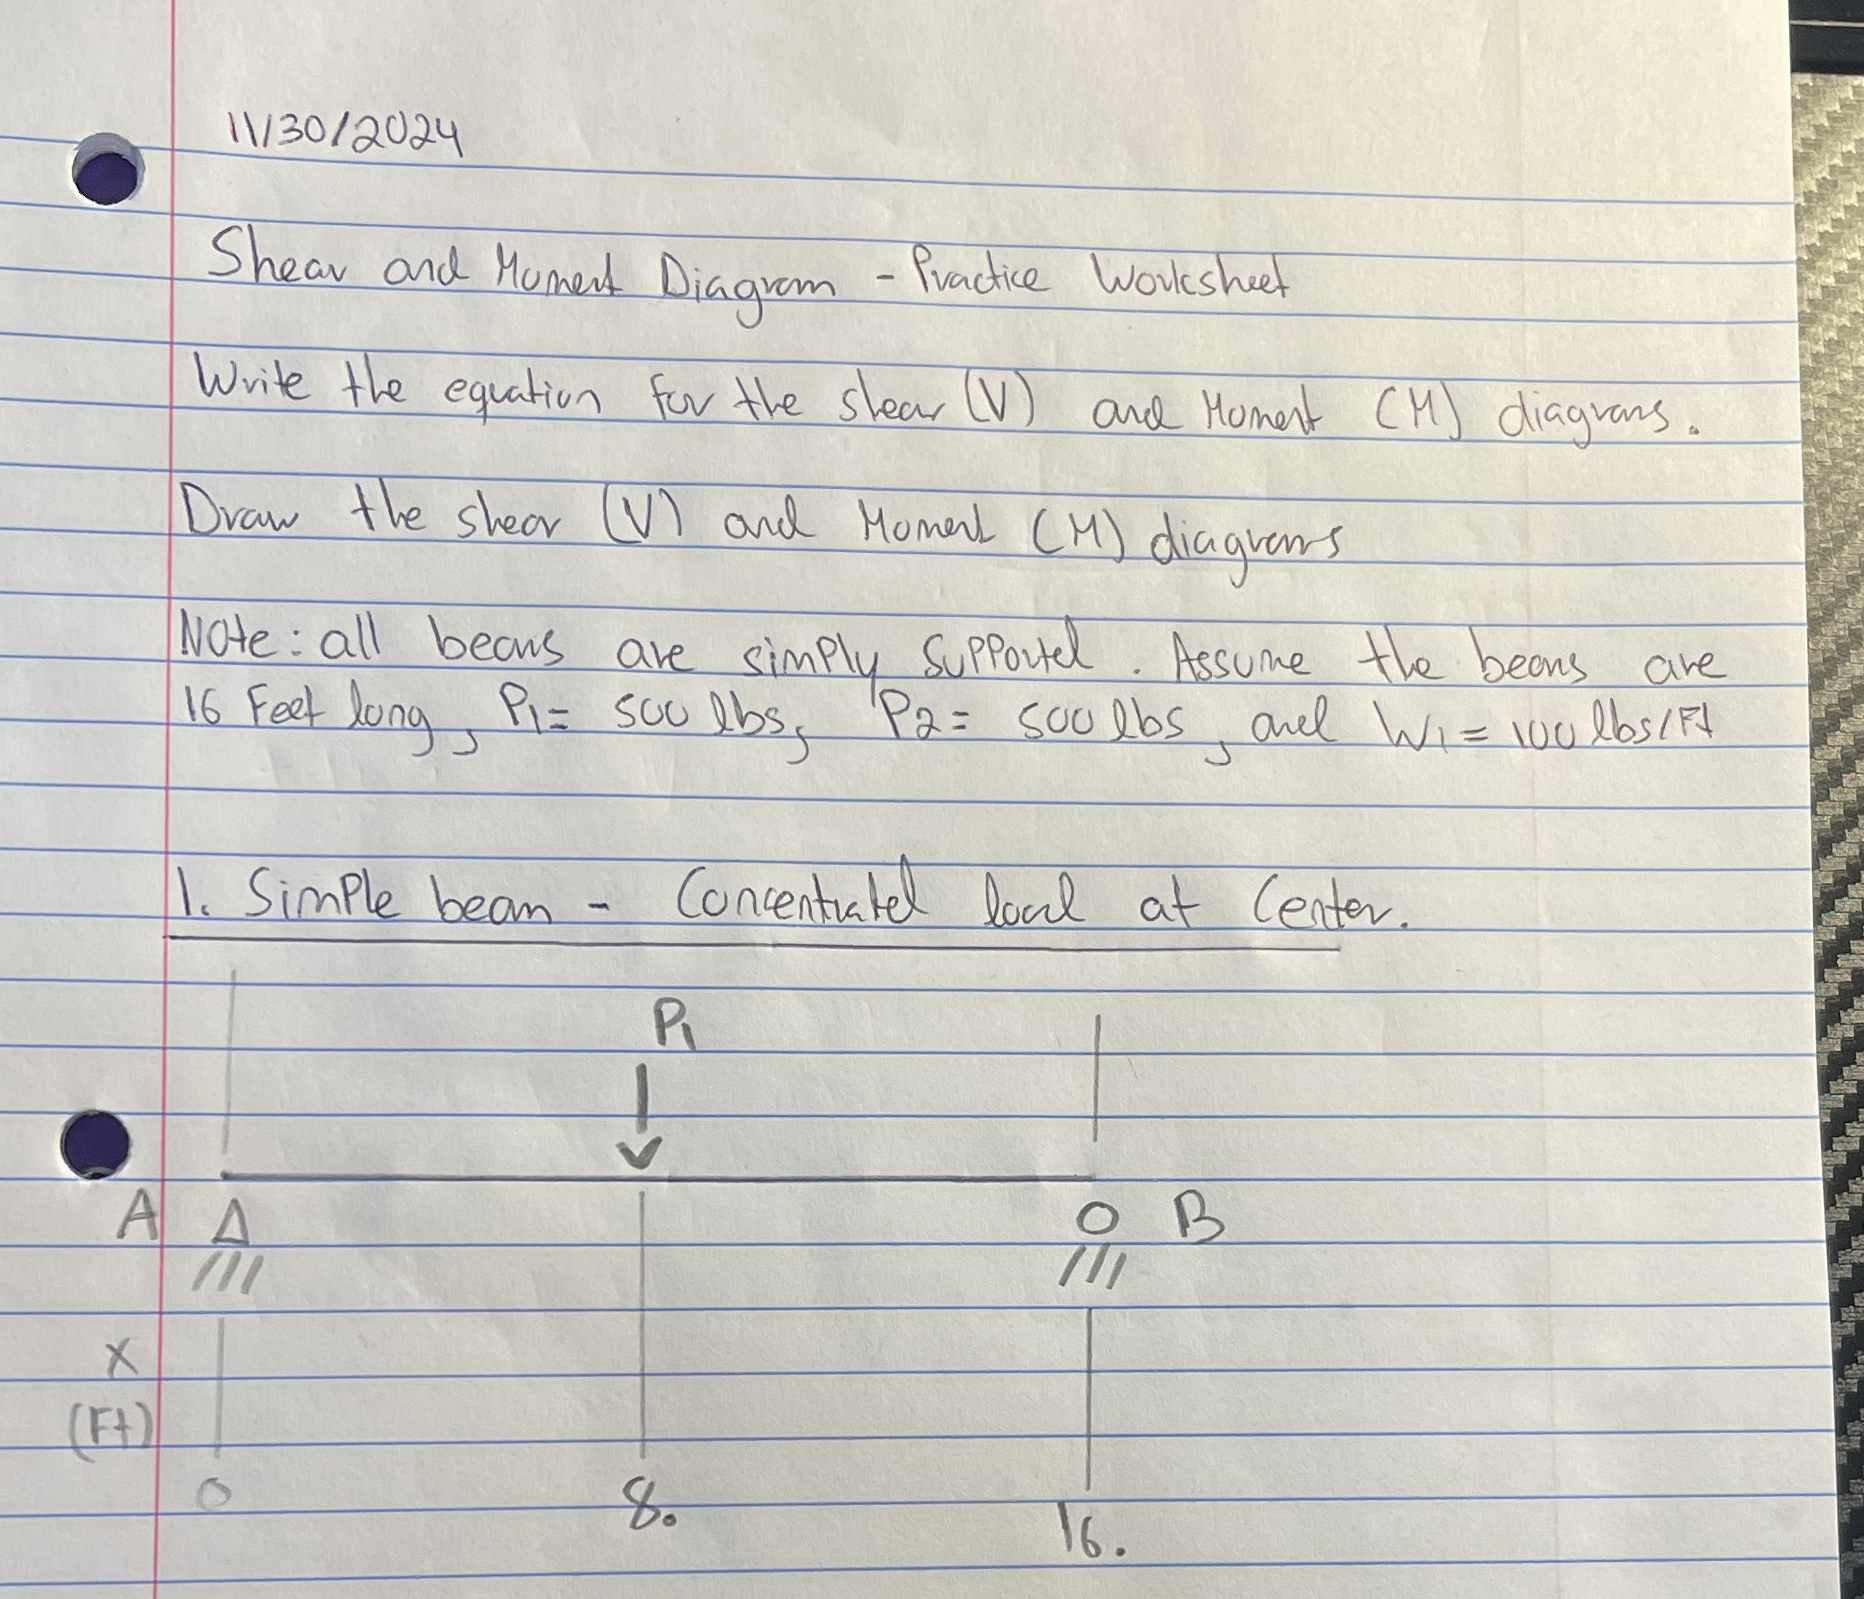 11/30/2024
Shear and Moment Diagram - Practice Worksheet
Write the equation for the shear (V) and Moment (M) diagrams.
Draw the shear (V) and Moment (M) diagrams
Note: all beams are simply supported. Assume the beams are
16 Feet long, P1= 500 lbs, P2= 500 lbs, and W1= 100 lbs/Ft
1. Simple beam - Concentrated load at Center.
P1
A
B
X
(Ft)
0 8. 16.